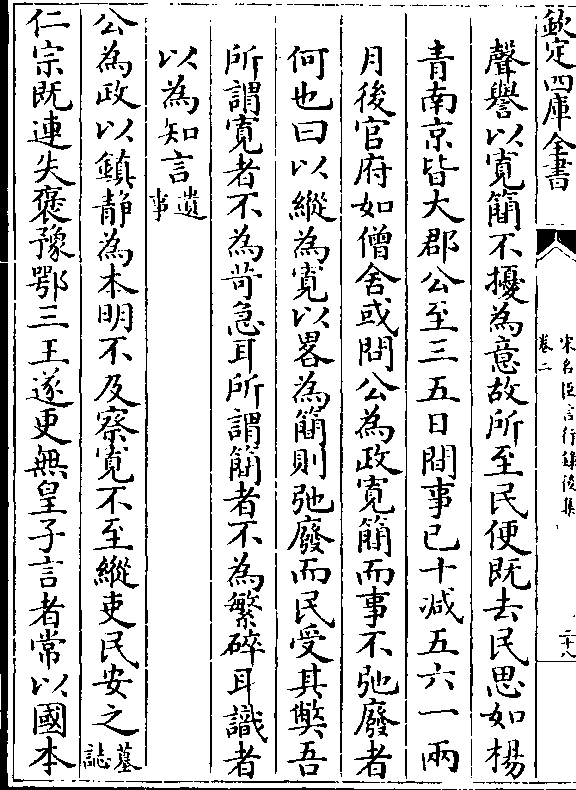 欽定四庫全書
宋名臣言行錄後集
卷二
二十八
聲譽以寛簡不擾為意故所至民便既去民思如楊
青南京皆大郡公至三五日間事已十減五六一兩
月後官府如僧舍或問公為政寛簡而事不弛廢者
何也曰以縱為寛以畧為簡則弛廢而民受其弊吾
所謂寛者不為苛急耳所謂簡者不為繁碎耳識者
以為知言遺事
公為政以鎮静為本明不及察寛不至縱吏民安之墓誌
仁宗既連失褒豫鄂三王遂更無皇子言者常以國本